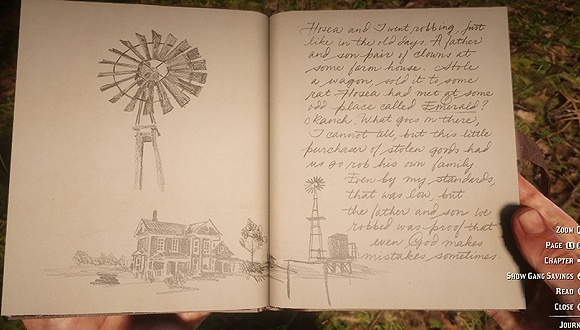 Hosea and I went robbing, just
like in the old days. A father
and son pair of clowns at
some farm house. Stole
a wagon, sold it to some
rat Hosea had met at some
odd place called Emerald?
Ranch. What goes on there,
I cannot tell, but this little
purchaser of stolen goods had
us go rob his own family
Even by my standards,
that was low, but
the father and son we
robbed was proof that
even God makes
mistakes sometimes.
ZOOM
PAGE L1
CHAPTER
SHOW GANG SAVINGS
READ
CLOSE
JOURN